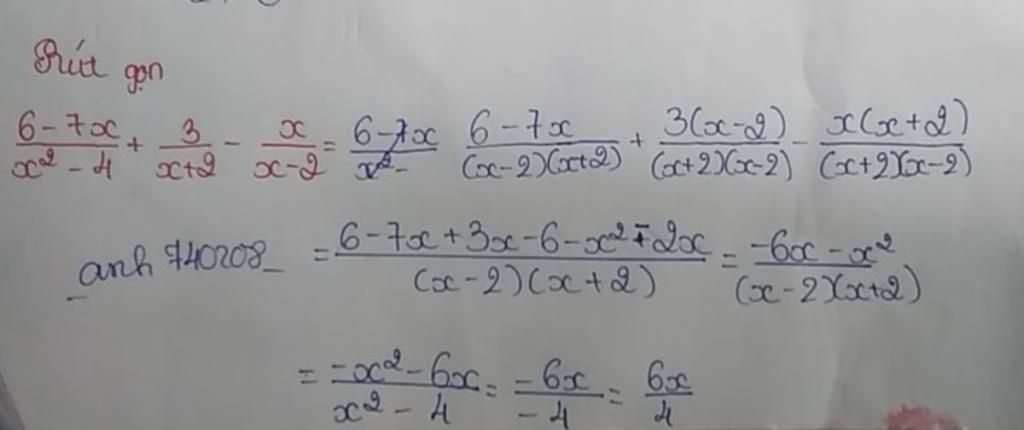 Rút gọn
6-7x/x² - 4 + 3/x+2 - x/x-2 = 6-7x/x²- 6-7x/(x-2)(x+2) + 3(x-2)/(x+2)(x-2) - x(x+2)/(x+2)(x-2)
_anh 740208_ = 6-7x+3x-6-x²-2x/(x-2)(x+2) = -6x-x²/(x-2)(x+2)
= -x²-6x/x²-4 = -6x/-4 = 6x/4